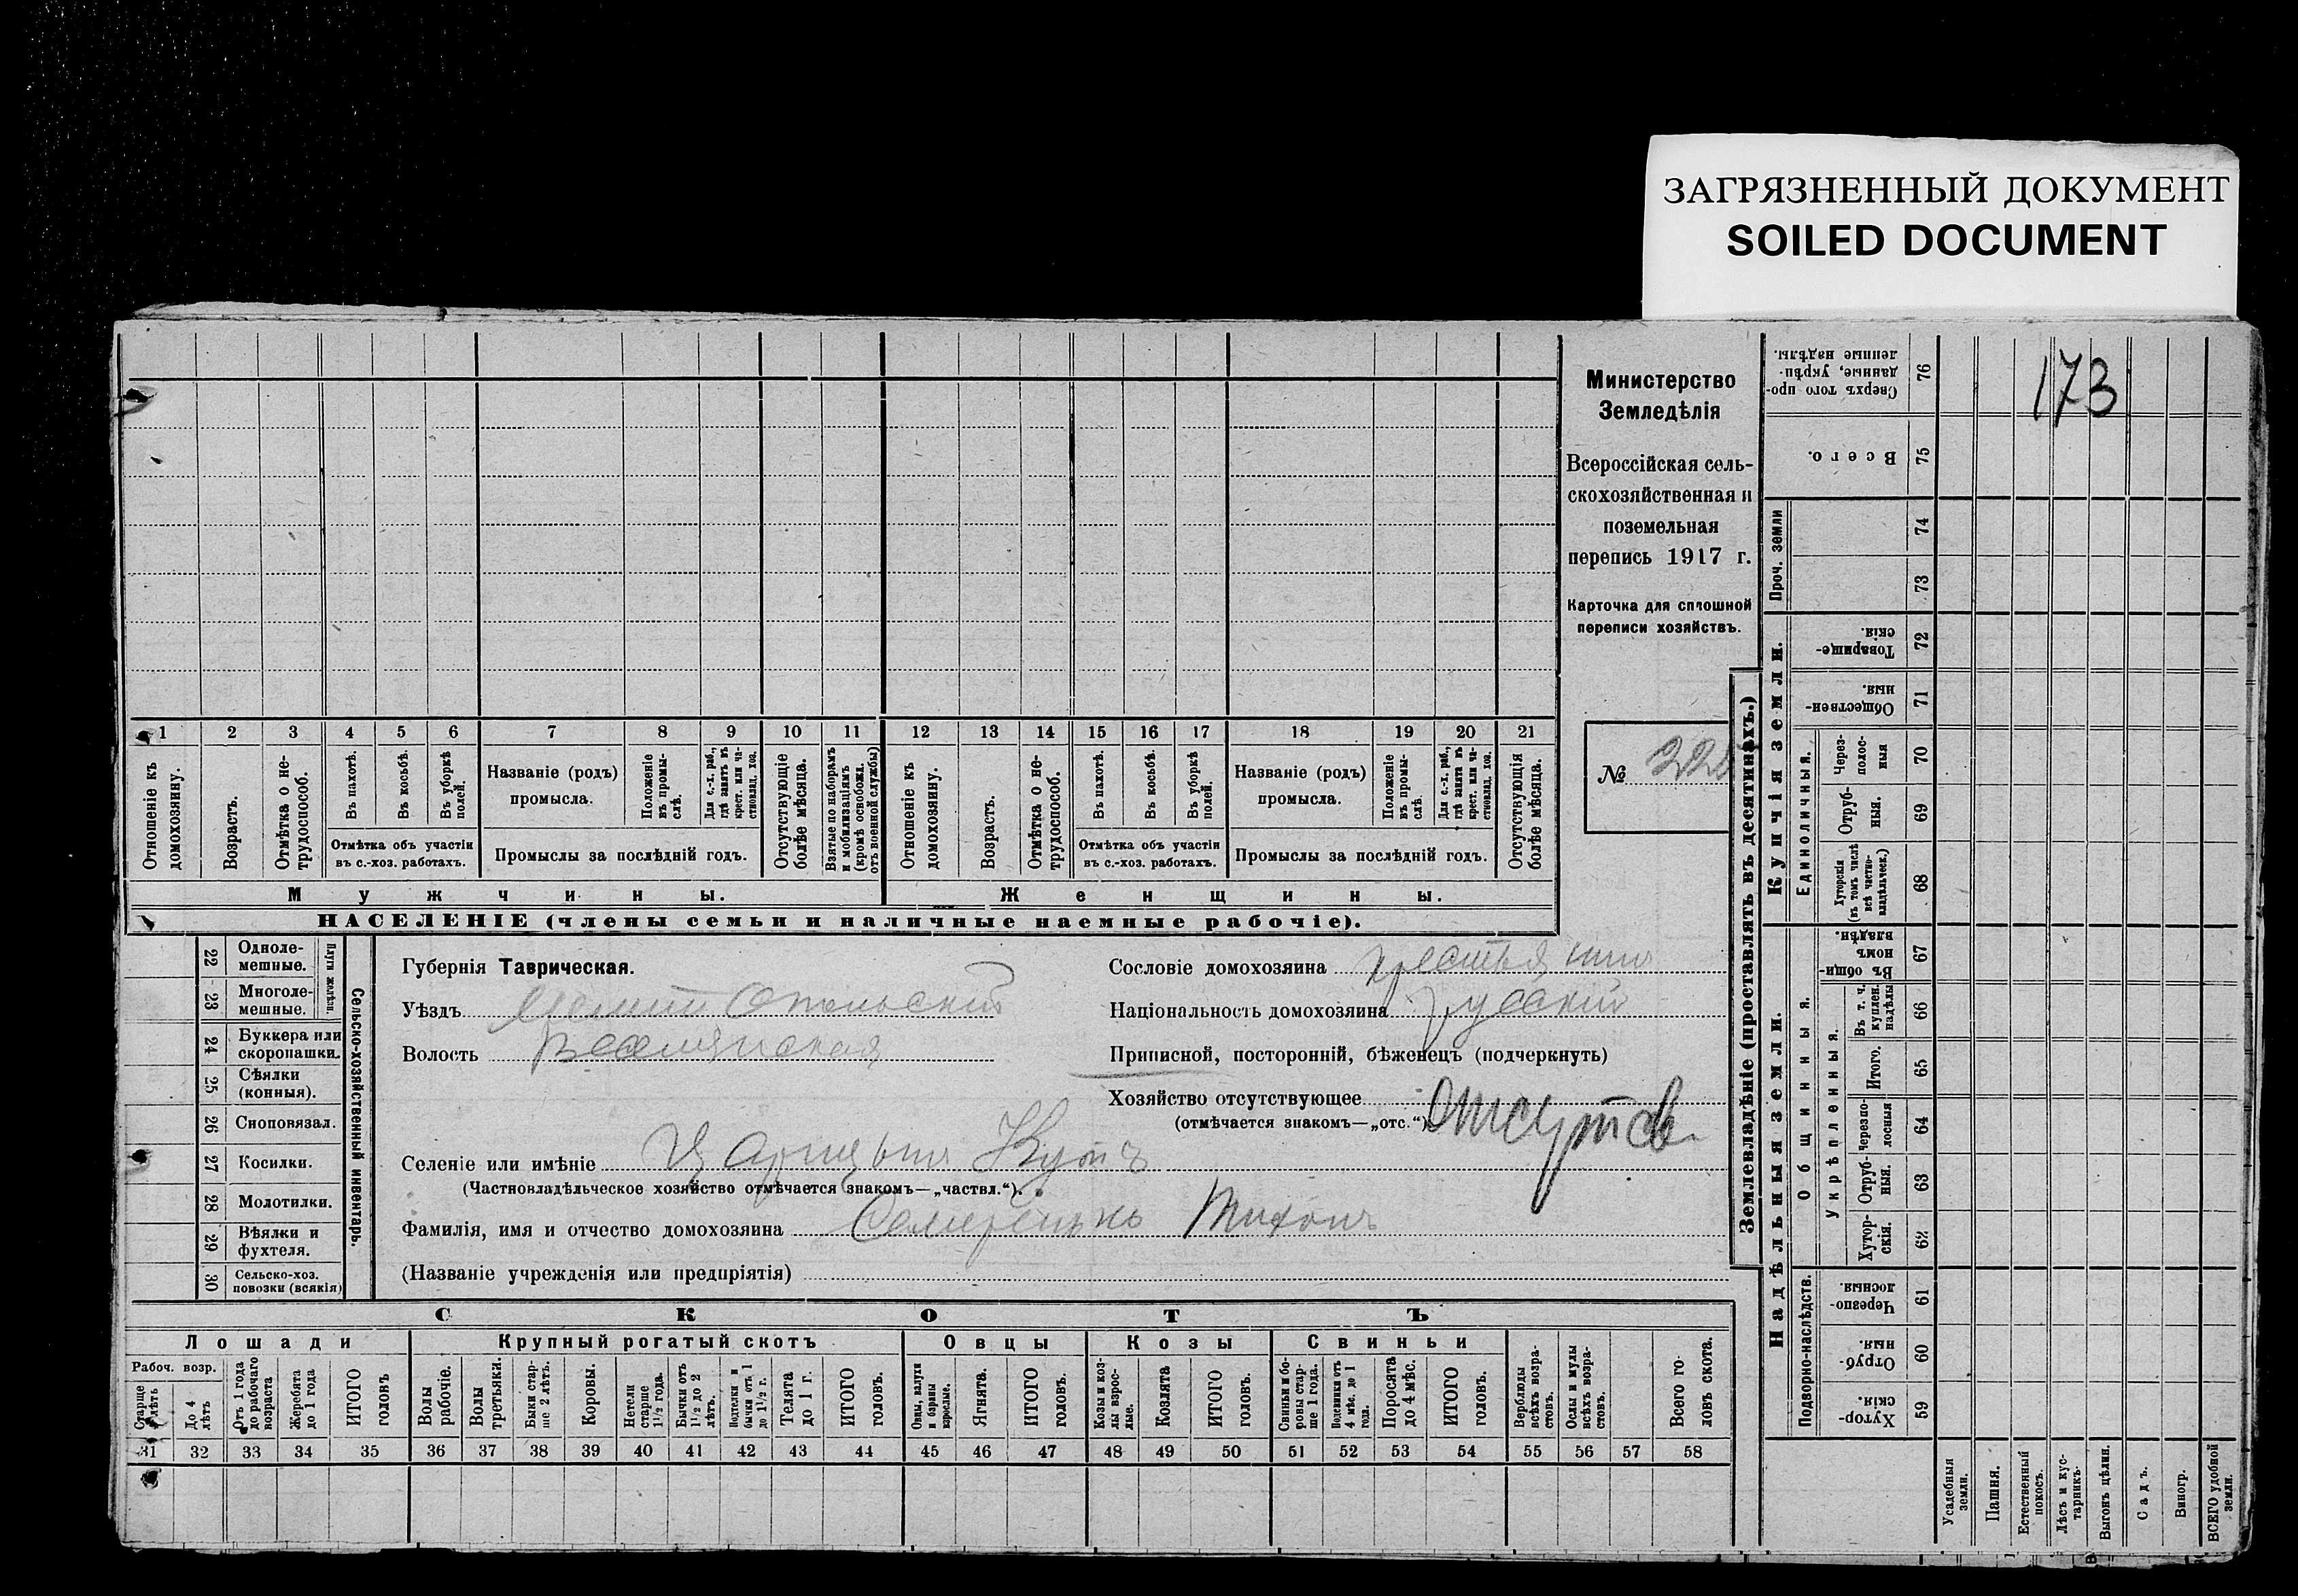 ЗАГРЯЗНЕННЫЙ ДОКУМЕНТ
SOILED DOCUMENT
173
Министерство
Земледѣлія
Всероссійская сель-
скохозяйственная и
поземельная
перепись 1917 г.
Карточка для сплошной
переписи хозяйствъ.
№ 22
1 2 3 4 5 6 7 8 9 10 11 12 13 14 15 16 17 18 19 20 21
Отношеніе къ домохозяину.
Возрастъ.
Отмѣтка о не-трудоспособ.
Въ пахотѣ.
Въ косьбѣ.
Въ уборкѣ полей.
Отмѣтка объ участіи
въ с.-хоз. работахъ.
Названіе (родъ)
промысла.
Положеніе въ промы-слѣ.
Для с.-х. раб., гдѣ занятъ въ крест. или ча-стновлад. хоз.
Промыслы за послѣдній годъ.
Отсутствующіе болѣе мѣсяца.
Взятые по наборамъ и мобилизаціямъ (кромѣ освобожд. отъ военной службы)
Отношеніе къ домохозяину.
Возрастъ.
Отмѣтка о не-трудоспособ.
Въ пахотѣ.
Въ косьбѣ.
Въ уборкѣ полей.
Отмѣтка объ участіи
въ с.-хоз. работахъ.
Названіе (родъ)
промысла.
Положеніе въ промы-слѣ.
Для с.-х. раб., гдѣ занята въ крест. или ча-стновлад. хоз.
Промыслы за послѣдній годъ.
Отсутствующія болѣе мѣсяца.
Мужчины. Женщины.
НАСЕЛЕНІЕ (члены семьи и наличные наемные рабочіе).
22 Одноле-мешные.
23 Многоле-мешные.
Плуги желѣзн.
24 Буккера или скоропашки.
25 Сѣялки (конныя).
26 Сноповязал.
27 Косилки.
28 Молотилки.
29 Вѣялки и фухтеля.
30 Сельско-хоз. повозки (всякія)
Сельско-хозяйственный инвентарь.
Губернія Таврическая.
Уѣздъ Мелитопольскій
Волость Веселянская
Сословіе домохозяина крестьянин
Національность домохозяина русскій
Приписной, посторонній, бѣженецъ (подчеркнуть)
Хозяйство отсутствующее отсутств
(отмѣчается знакомъ—„отс.“)
Селеніе или имѣніе Царицын Кутъ
(Частновладѣльческое хозяйство отмѣчается знакомъ—„частвл.“).
Фамилія, имя и отчество домохозяина Тихонъ
(Названіе учрежденія или предпріятія)
СКОТЪ
Лошади Крупный рогатый скотъ Овцы Козы Свиньи
Рабоч. возр.
Старше 4 лѣтъ
До 4 лѣтъ
Отъ 1 года до рабочаго возраста
Жеребята до 1 года
ИТОГО головъ
Волы рабочіе.
Волы третьяки.
Быки стар-ше 2 лѣтъ.
Коровы.
Нетели старше 1½ года.
Бычки отъ 1½ до 2 лѣтъ.
Подтелки и бычки отъ 1 до 1½ г.
Телята до 1 г.
ИТОГО головъ.
Овцы, валухи и бараны взрослые.
Ягнята.
ИТОГО головъ.
Козы и коз-лы взрос-лые.
Козлята
ИТОГО головъ.
Свиньи и бо-ровы стар-ше 1 года.
Подсвинки отъ 4 мѣс. до 1 года.
Поросята до 4 мѣс.
ИТОГО головъ.
Верблюды всѣхъ возра-стовъ.
Ослы и мулы всѣхъ возра-стовъ.
Всего го-ловъ скота.
31 32 33 34 35 36 37 38 39 40 41 42 43 44 45 46 47 48 49 50 51 52 53 54 55 56 57 58
Землевладѣніе (проставлять въ десятинахъ.)
Надѣльныя земли.
Купчія земли.
Проч. земли
Подворно-наслѣдств.
Общинныя.
Укрѣпленныя.
Единоличныя.
76 Сверхъ того про-данные, укрѣп-ленные надѣлы.
75 Всего.
74
73
72 Товарище-скія.
71 Обществен-ныя.
70 Через-полос-ныя
69 Отруб-ныя.
68 Хуторскія (въ томъ числѣ всѣ частно-владѣльческ.)
67 Въ общин-номъ владѣн.
66 Въ т. ч. куплен. надѣлы
65 Итого.
64 Черезпо-лосныя
63 Отруб-ныя.
62 Хутор-скія.
61 Черезпо-лосныя
60 Отруб-ныя.
59 Хутор-скія.
Усадебныя земли.
Пашня.
Естественный покосъ.
Лѣсъ и кус-тарникъ.
Выгонъ цѣлин.
Садъ.
Виногр.
ВСЕГО удобной земли.